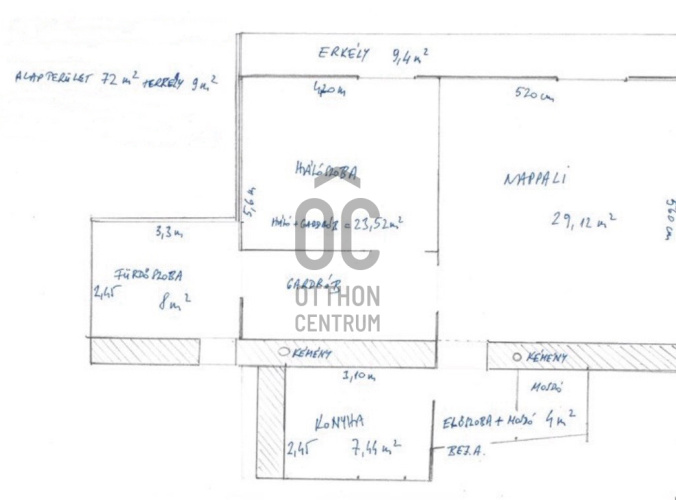 ERKÉLY 9,4 m²
ALAPTERÜLET 72 m² + ERKÉLY 9 m²
420 cm
520 cm
HÁLÓSZOBA
NAPPALI
5,6 m
560 cm
HÁLÓ + GARDRÓB = 23,52 m²
29,12 m²
3,3 m
FÜRDŐSZOBA
2,45
8 m²
GARDRÓB
OC
OTTHON
CENTRUM
KÉMÉNY
KÉMÉNY
3,10 m
MOSDÓ
KONYHA
ELŐSZOBA + MOSDÓ 4 m²
2,45
7,44 m²
BEJ.A.